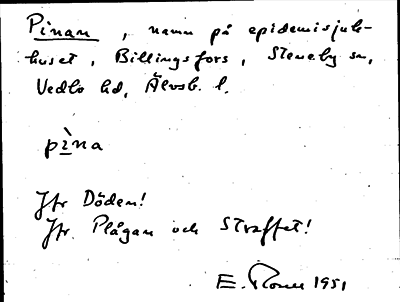 Pinan, namn på epidemisjuk-
huset, Billingsfors, Steneby sn,
Vedbo hd, Älvsb. l.
pìna
Jfr Döden!
Jfr Plågan och Straffet!
E. 1951